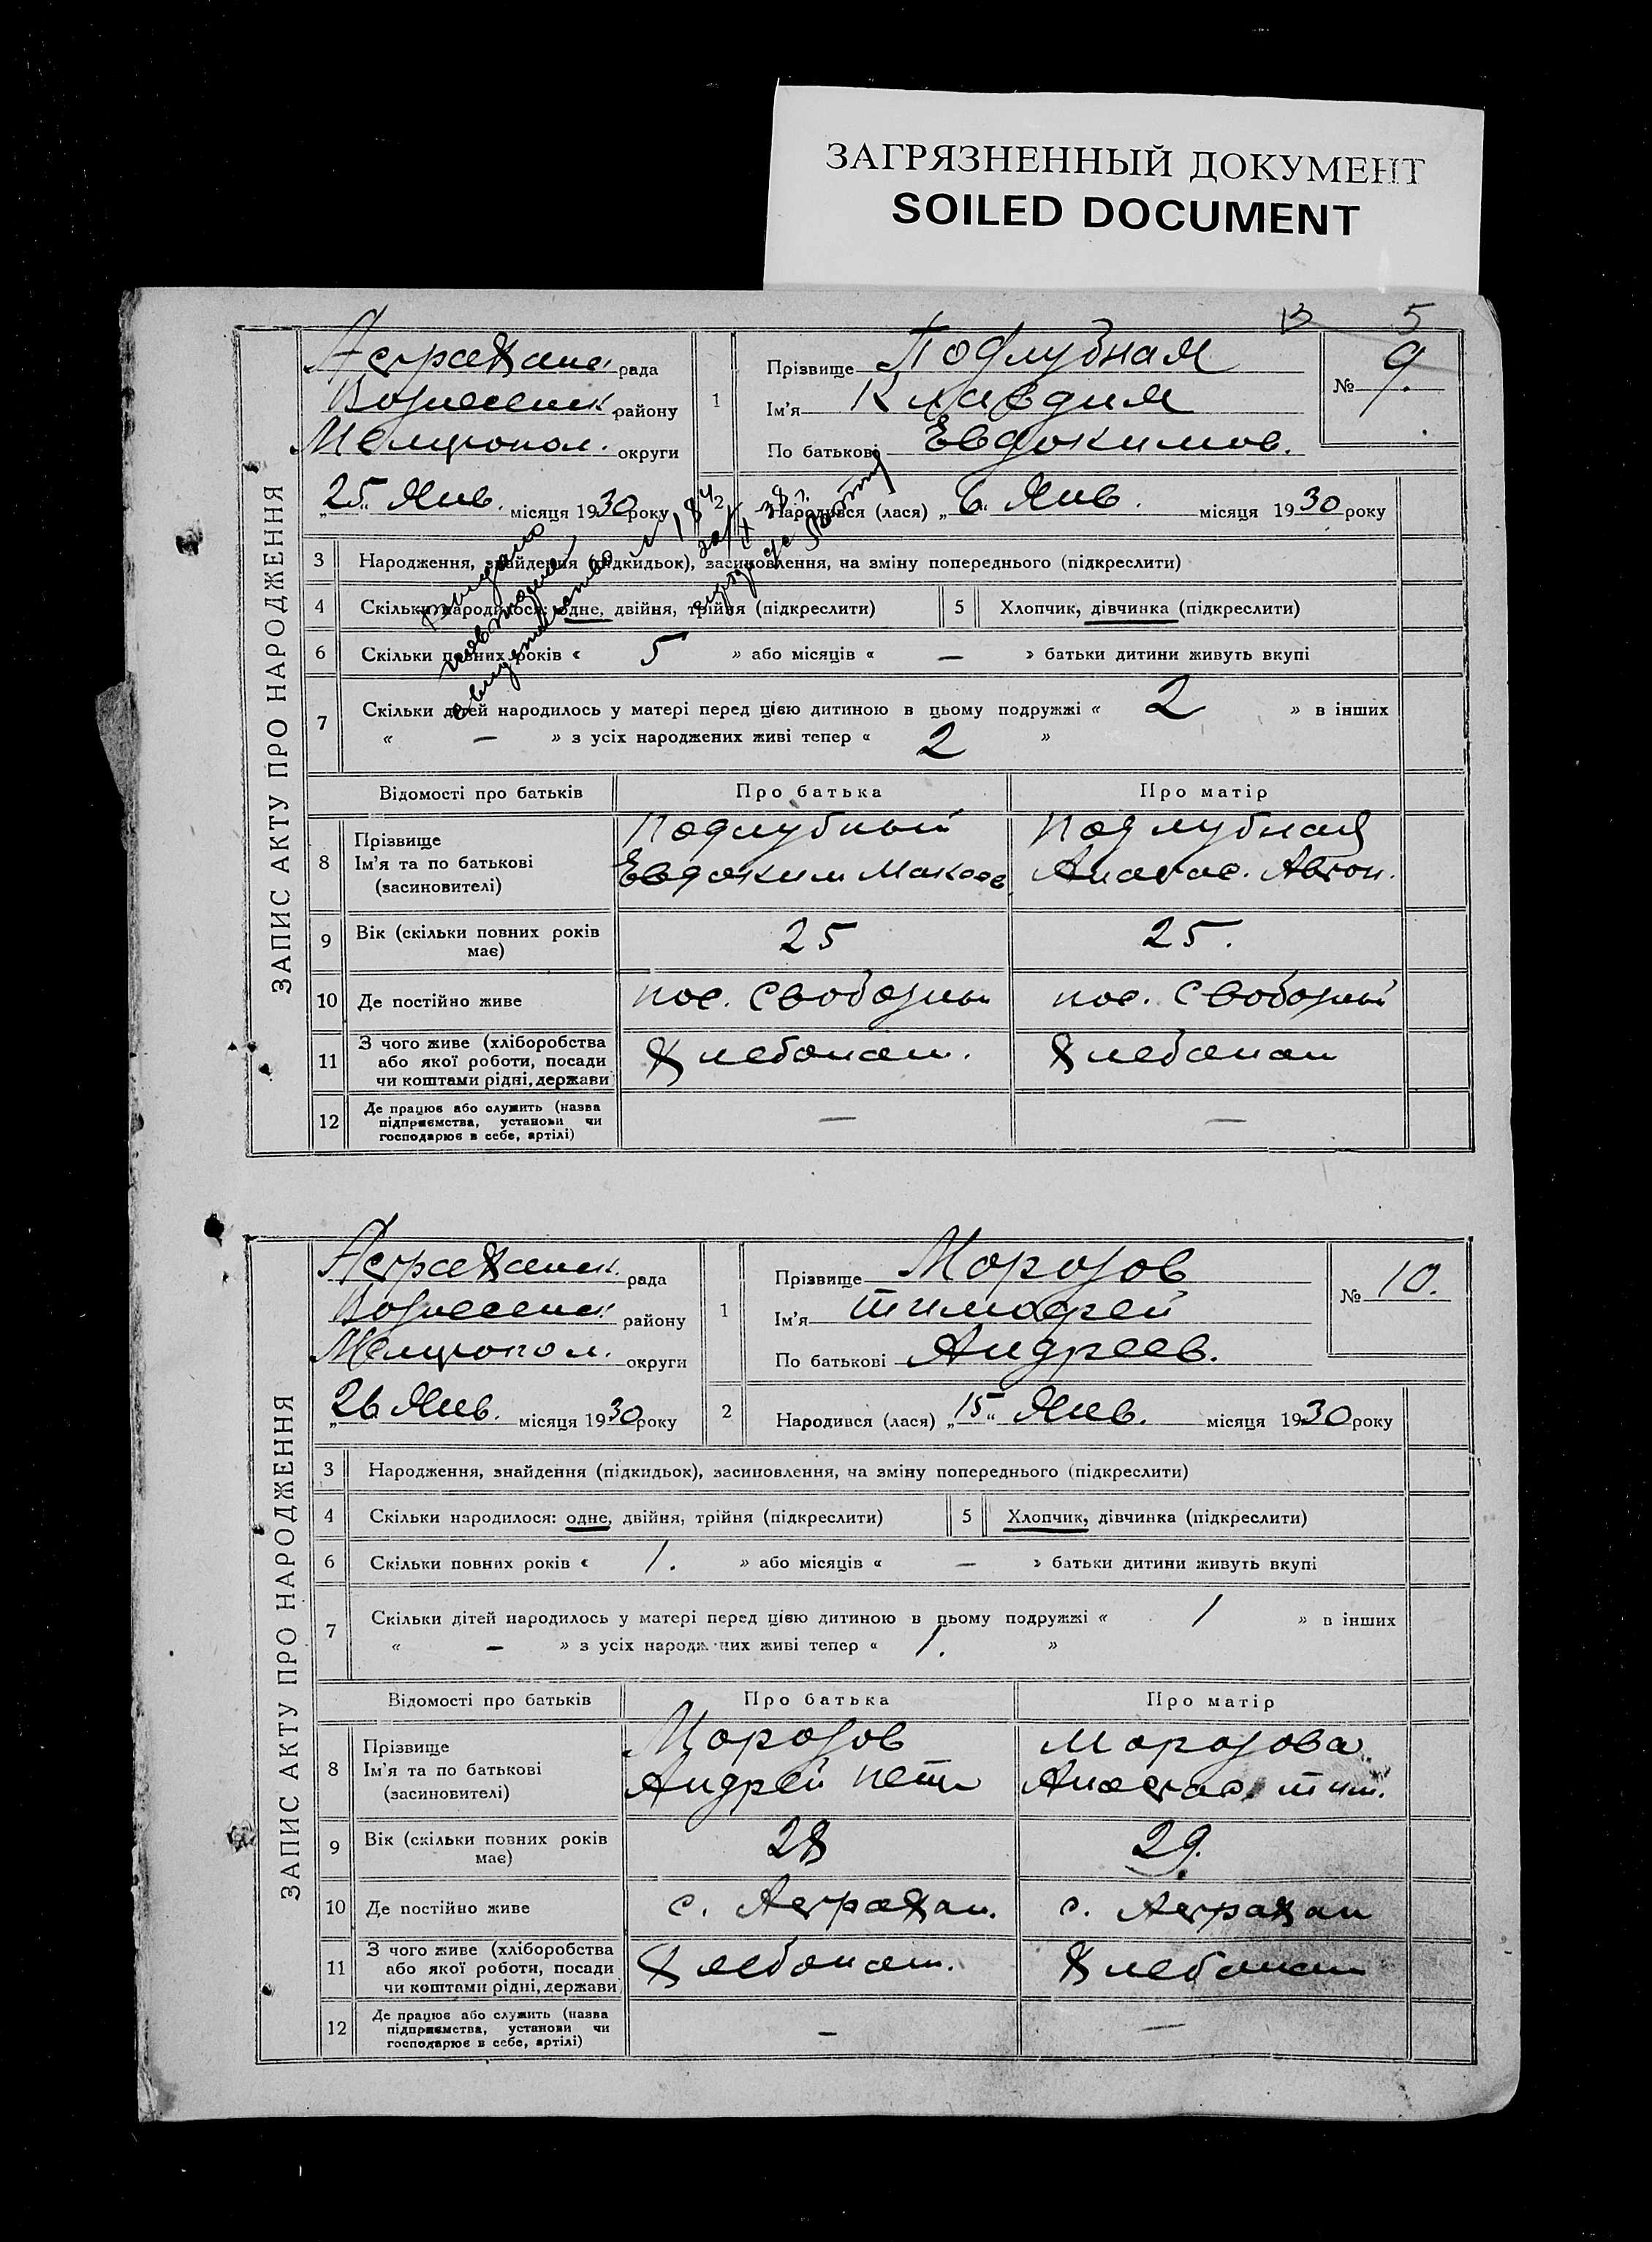 ЗАГРЯЗНЕННЫЙ ДОКУМЕНТ
SOILED DOCUMENT
13 5
ЗАПИС АКТУ ПРО НАРОДЖЕННЯ
Астраханс. рада
Вознесенск району
Мелитопол. округи
„25“ Янв. місяця 1930 року
1
Прізвище Подлубная
Ім'я Клавдия
По батькові Евдокимов.
№ 9.
Народився (лася) „6“ Янв. місяця 1930 року
выдано
повторное
свидетельство
3 Народження, знайдення (підкидьок), засиновлення, на зміну попереднього (підкреслити)
4 Скільки народилося: одне, двійня, трійня (підкреслити)
5 Хлопчик, дівчинка (підкреслити)
6 Скільки повних років « 5 » або місяців « — » батьки дитини живуть вкупі
7 Скільки дітей народилось у матері перед цією дитиною в цьому подружжі « 2 » в інших
« — » з усіх народжених живі тепер « 2 »
Відомості про батьків Про батька Про матір
8 Прізвище Подлубный Подлубная
Ім'я та по батькові Евдоким Анастас. Автон.
(засиновителі)
9 Вік (скільки повних років має) 25 25.
10 Де постійно живе пос. Свободный пос. Свободный
11 З чого живе (хліборобства або якої роботи, посади чи коштами рідні, держави Хлебопаш. Хлебопаш
12 Де працює або служить (назва підприємства, установи чи господарює в себе, артілі) — —
ЗАПИС АКТУ ПРО НАРОДЖЕННЯ
Астраханск. рада
Вознесенск. району
Мелитопол. округи
„26 Янв. місяця 1930 року
1
Прізвище Морозов
Ім'я Тимофей
По батькові Андреев.
№ 10.
2 Народився (лася) „15“ Янв. місяця 1930 року
3 Народження, знайдення (підкидьок), засиновлення, на зміну попереднього (підкреслити)
4 Скільки народилося: одне, двійня, трійня (підкреслити)
5 Хлопчик, дівчинка (підкреслити)
6 Скільки повних років « 1. » або місяців « — » батьки дитини живуть вкупі
7 Скільки дітей народилось у матері перед цією дитиною в цьому подружжі « 1 » в інших
« — » з усіх народж них живі тепер « 1. »
Відомості про батьків Про батька Про матір
8 Прізвище Морозов Морозова
Ім'я та по батькові Андрей Петр Анастас. Тим.
(засиновителі)
9 Вік (скільки повних років має) 28 29.
10 Де постійно живе с. Астрахан. с. Астрахан
11 З чого живе (хліборобства або якої роботи, посади чи коштами рідні, держави Хлебопаш. Хлебопаш
12 Де працює або служить (назва підприємства, установи чи господарює в себе, артілі) — —